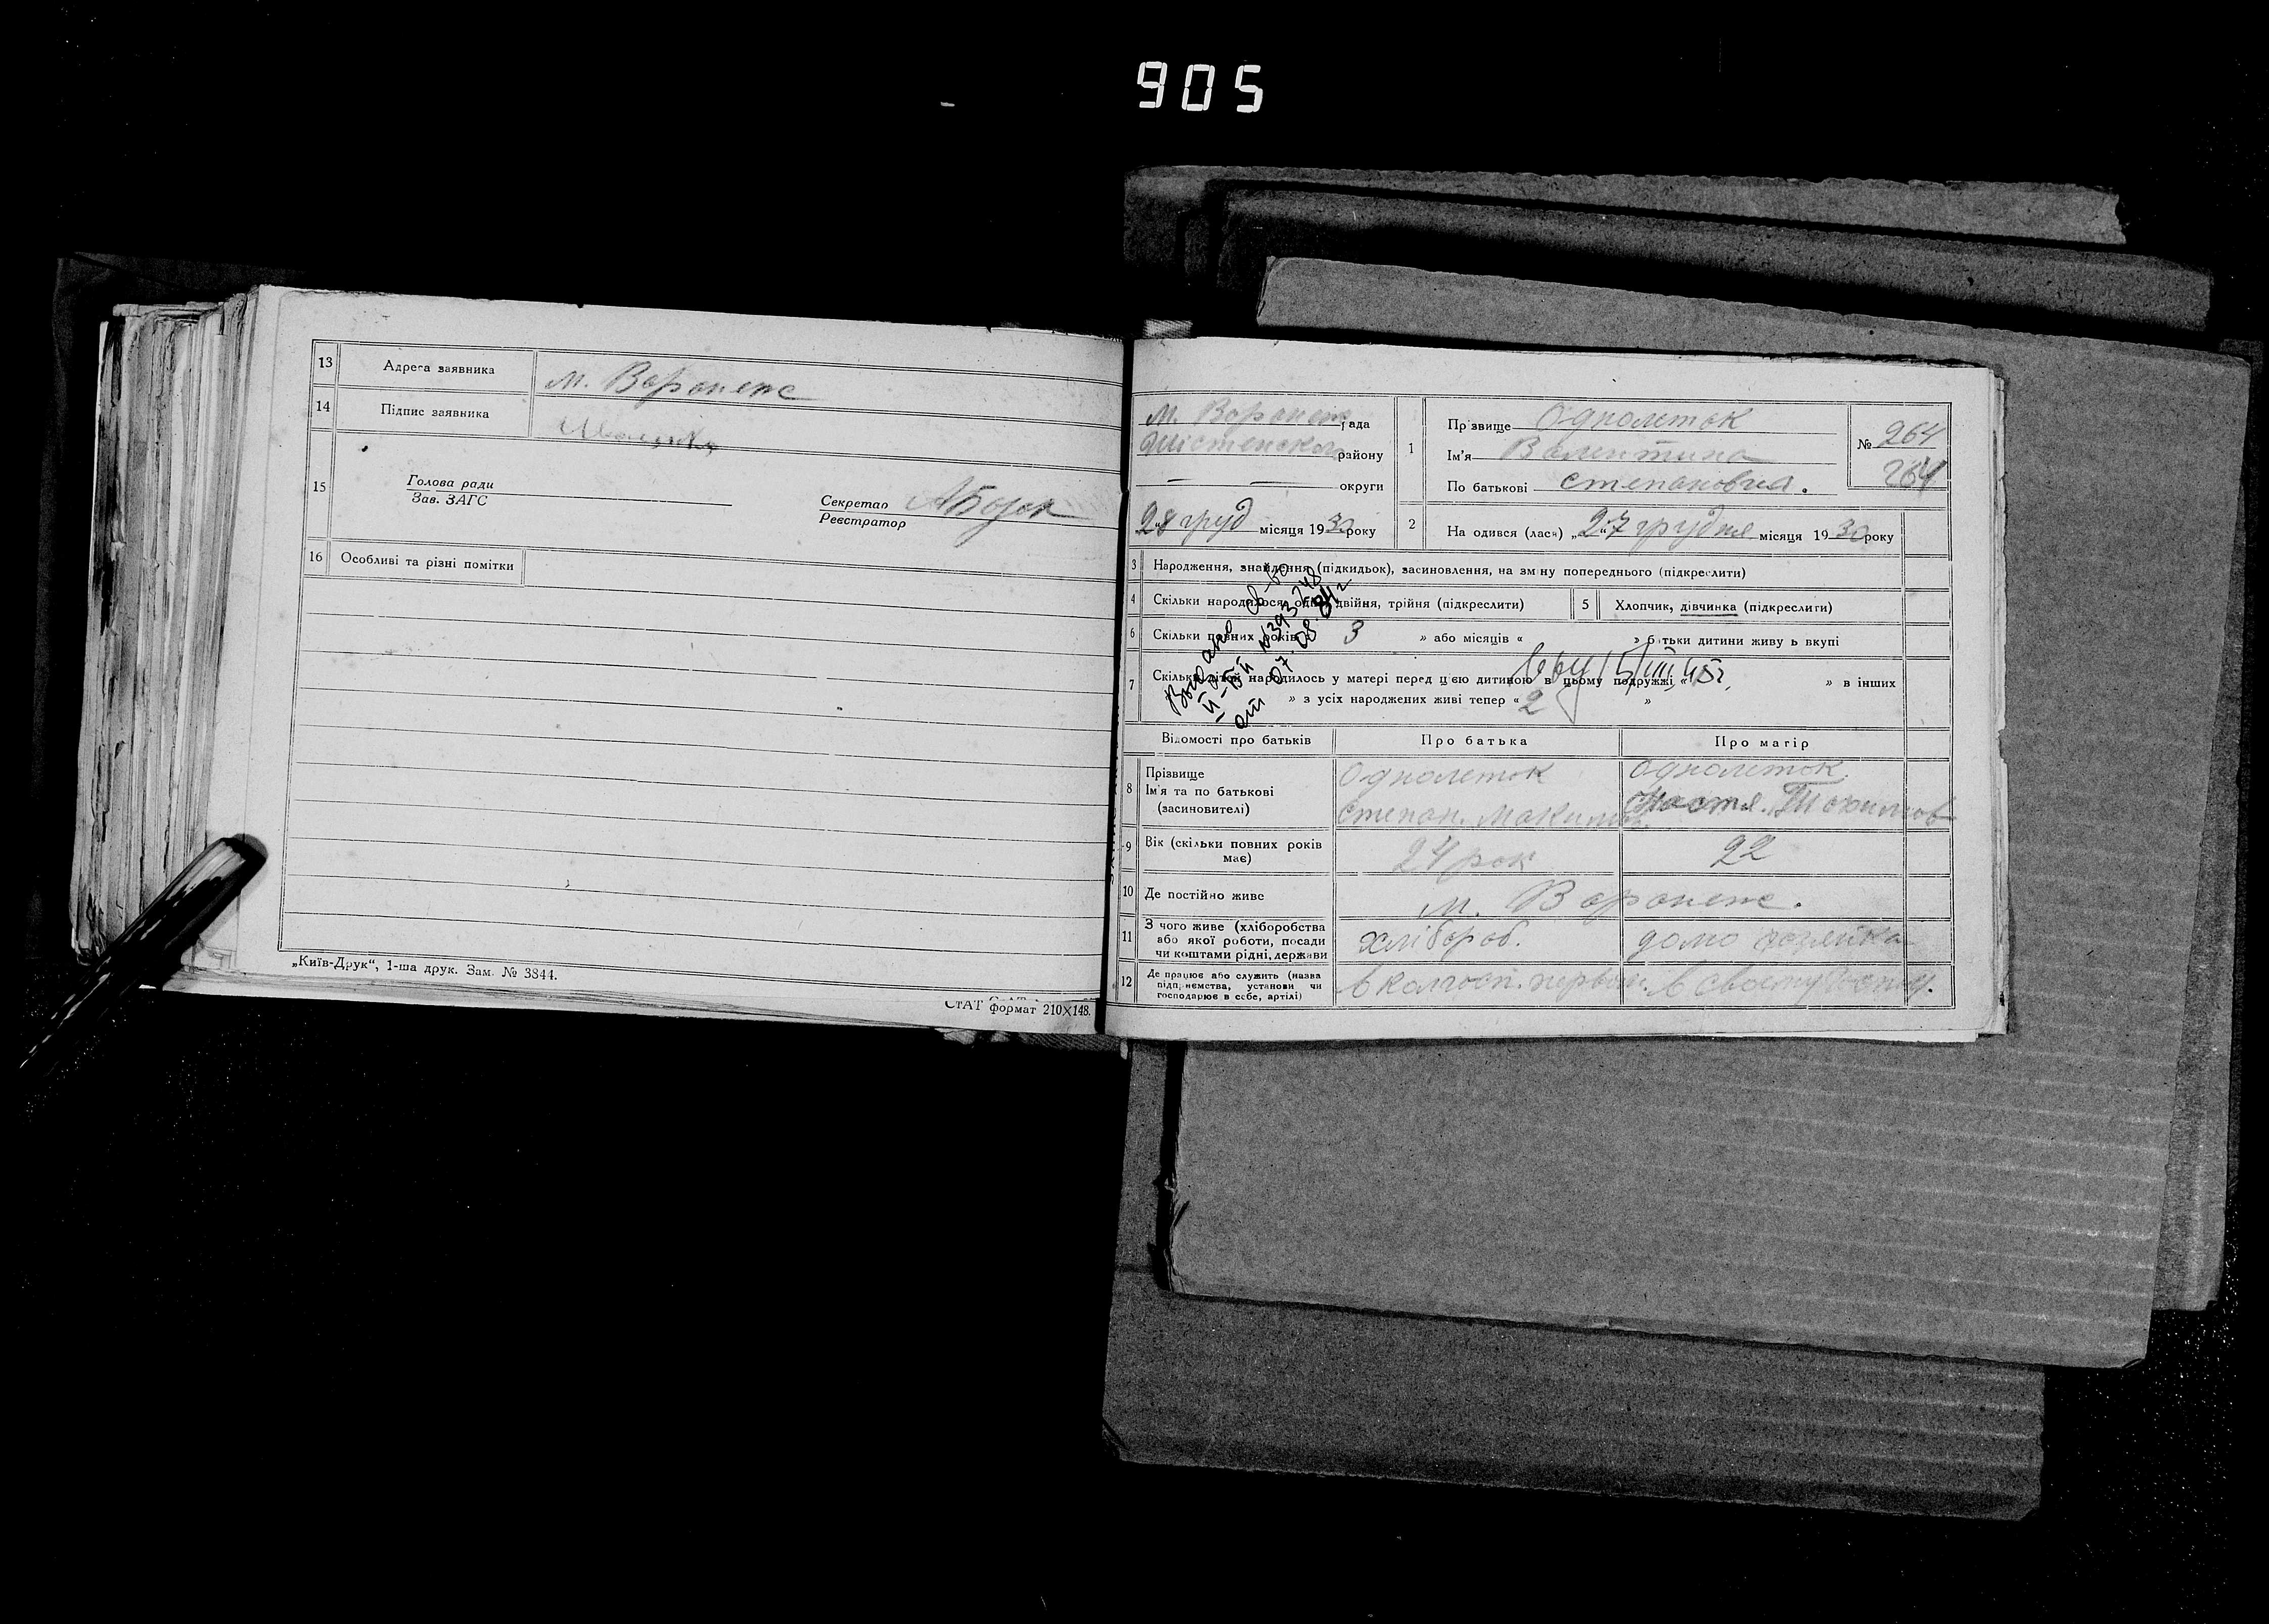 905
13 Адреса заявника м. Воронеж
14 Підпис заявника
15 Голова ради
Зав. ЗАГС
Секретар
Реєстратор
16 Особливі та різні помітки
„Київ-Друк“, 1-ша друк. Зам. № 3844.
СтАТ формат 210X148.
м. Воронеж рада
району
— — округи
28 груд місяця 1930 року
1 Прізвище Однолеток
Ім'я Валентина
По батькові Степановна.
№ 264
264
2 Народився (лася) „27 грудня місяця 1930 року
3 Народження, знайдення (підкидьок), засиновлення, на зміну попереднього (підкреслити)
4 Скільки народилося: одна, двійня, трійня (підкреслити)
5 Хлопчик, дівчинка (підкреслити)
6 Скільки повних років « 3 » або місяців « » батьки дитини живуть вкупі
7 Скільки дітей народилось у матері перед цією дитиною в цьому подружжі « » в інших
» з усіх народжених живі тепер « 2 »
Выдано св-во
II-БП №393248
от 07.08.84г
Відомості про батьків Про батька Про матір
8 Прізвище
Ім'я та по батькові
(засиновителі)
Однолеток
Степан.
Однолеток
Настя.
9 Вік (скільки повних років має)
24 рок
22
10 Де постійно живе м. Воронеж.
11 З чого живе (хліборобства
або якої роботи, посади
чи коштами рідні, держави
хлібороб.
домо хозяйка
12 Де працює або служить (назва
підприємства, установи чи
господарює в себе, артілі)
в в своему